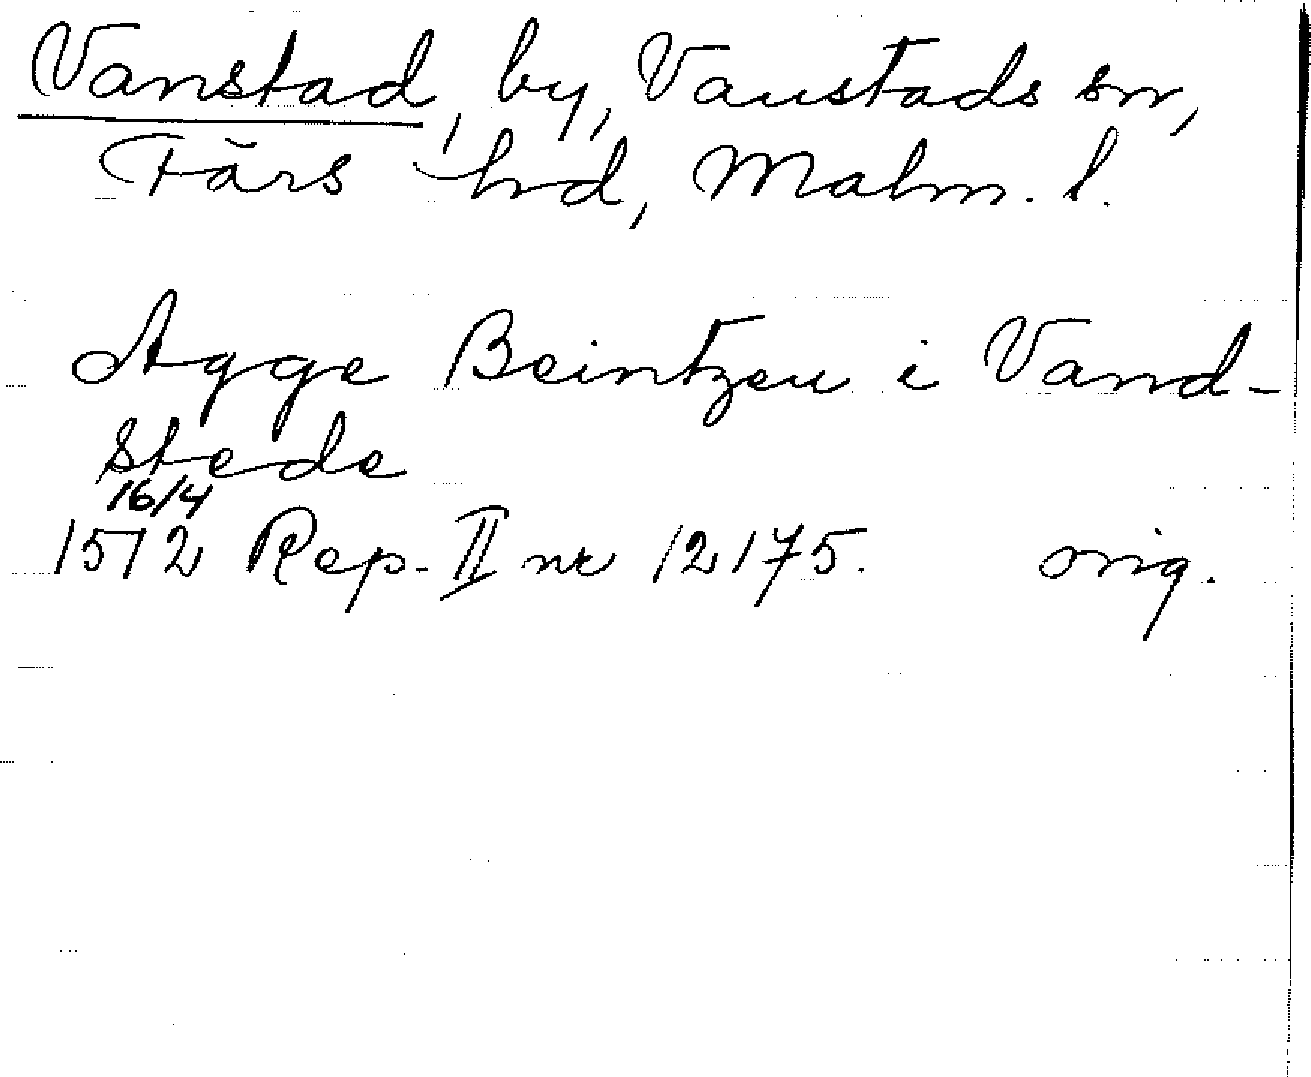 Vanstad, by, Vanstads sn,
Färs hd, Malm. l.
Agge Beintzen i Vand-
stede
16/4
1572 Rep. II nr 12175. orig.